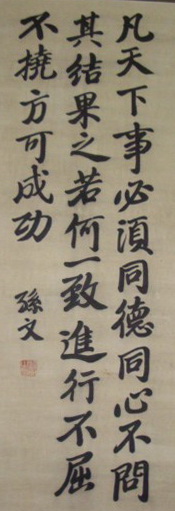 凡天下事必須同德同心不問
其結果之若何一致進行不屈
不撓方可成功
孫文